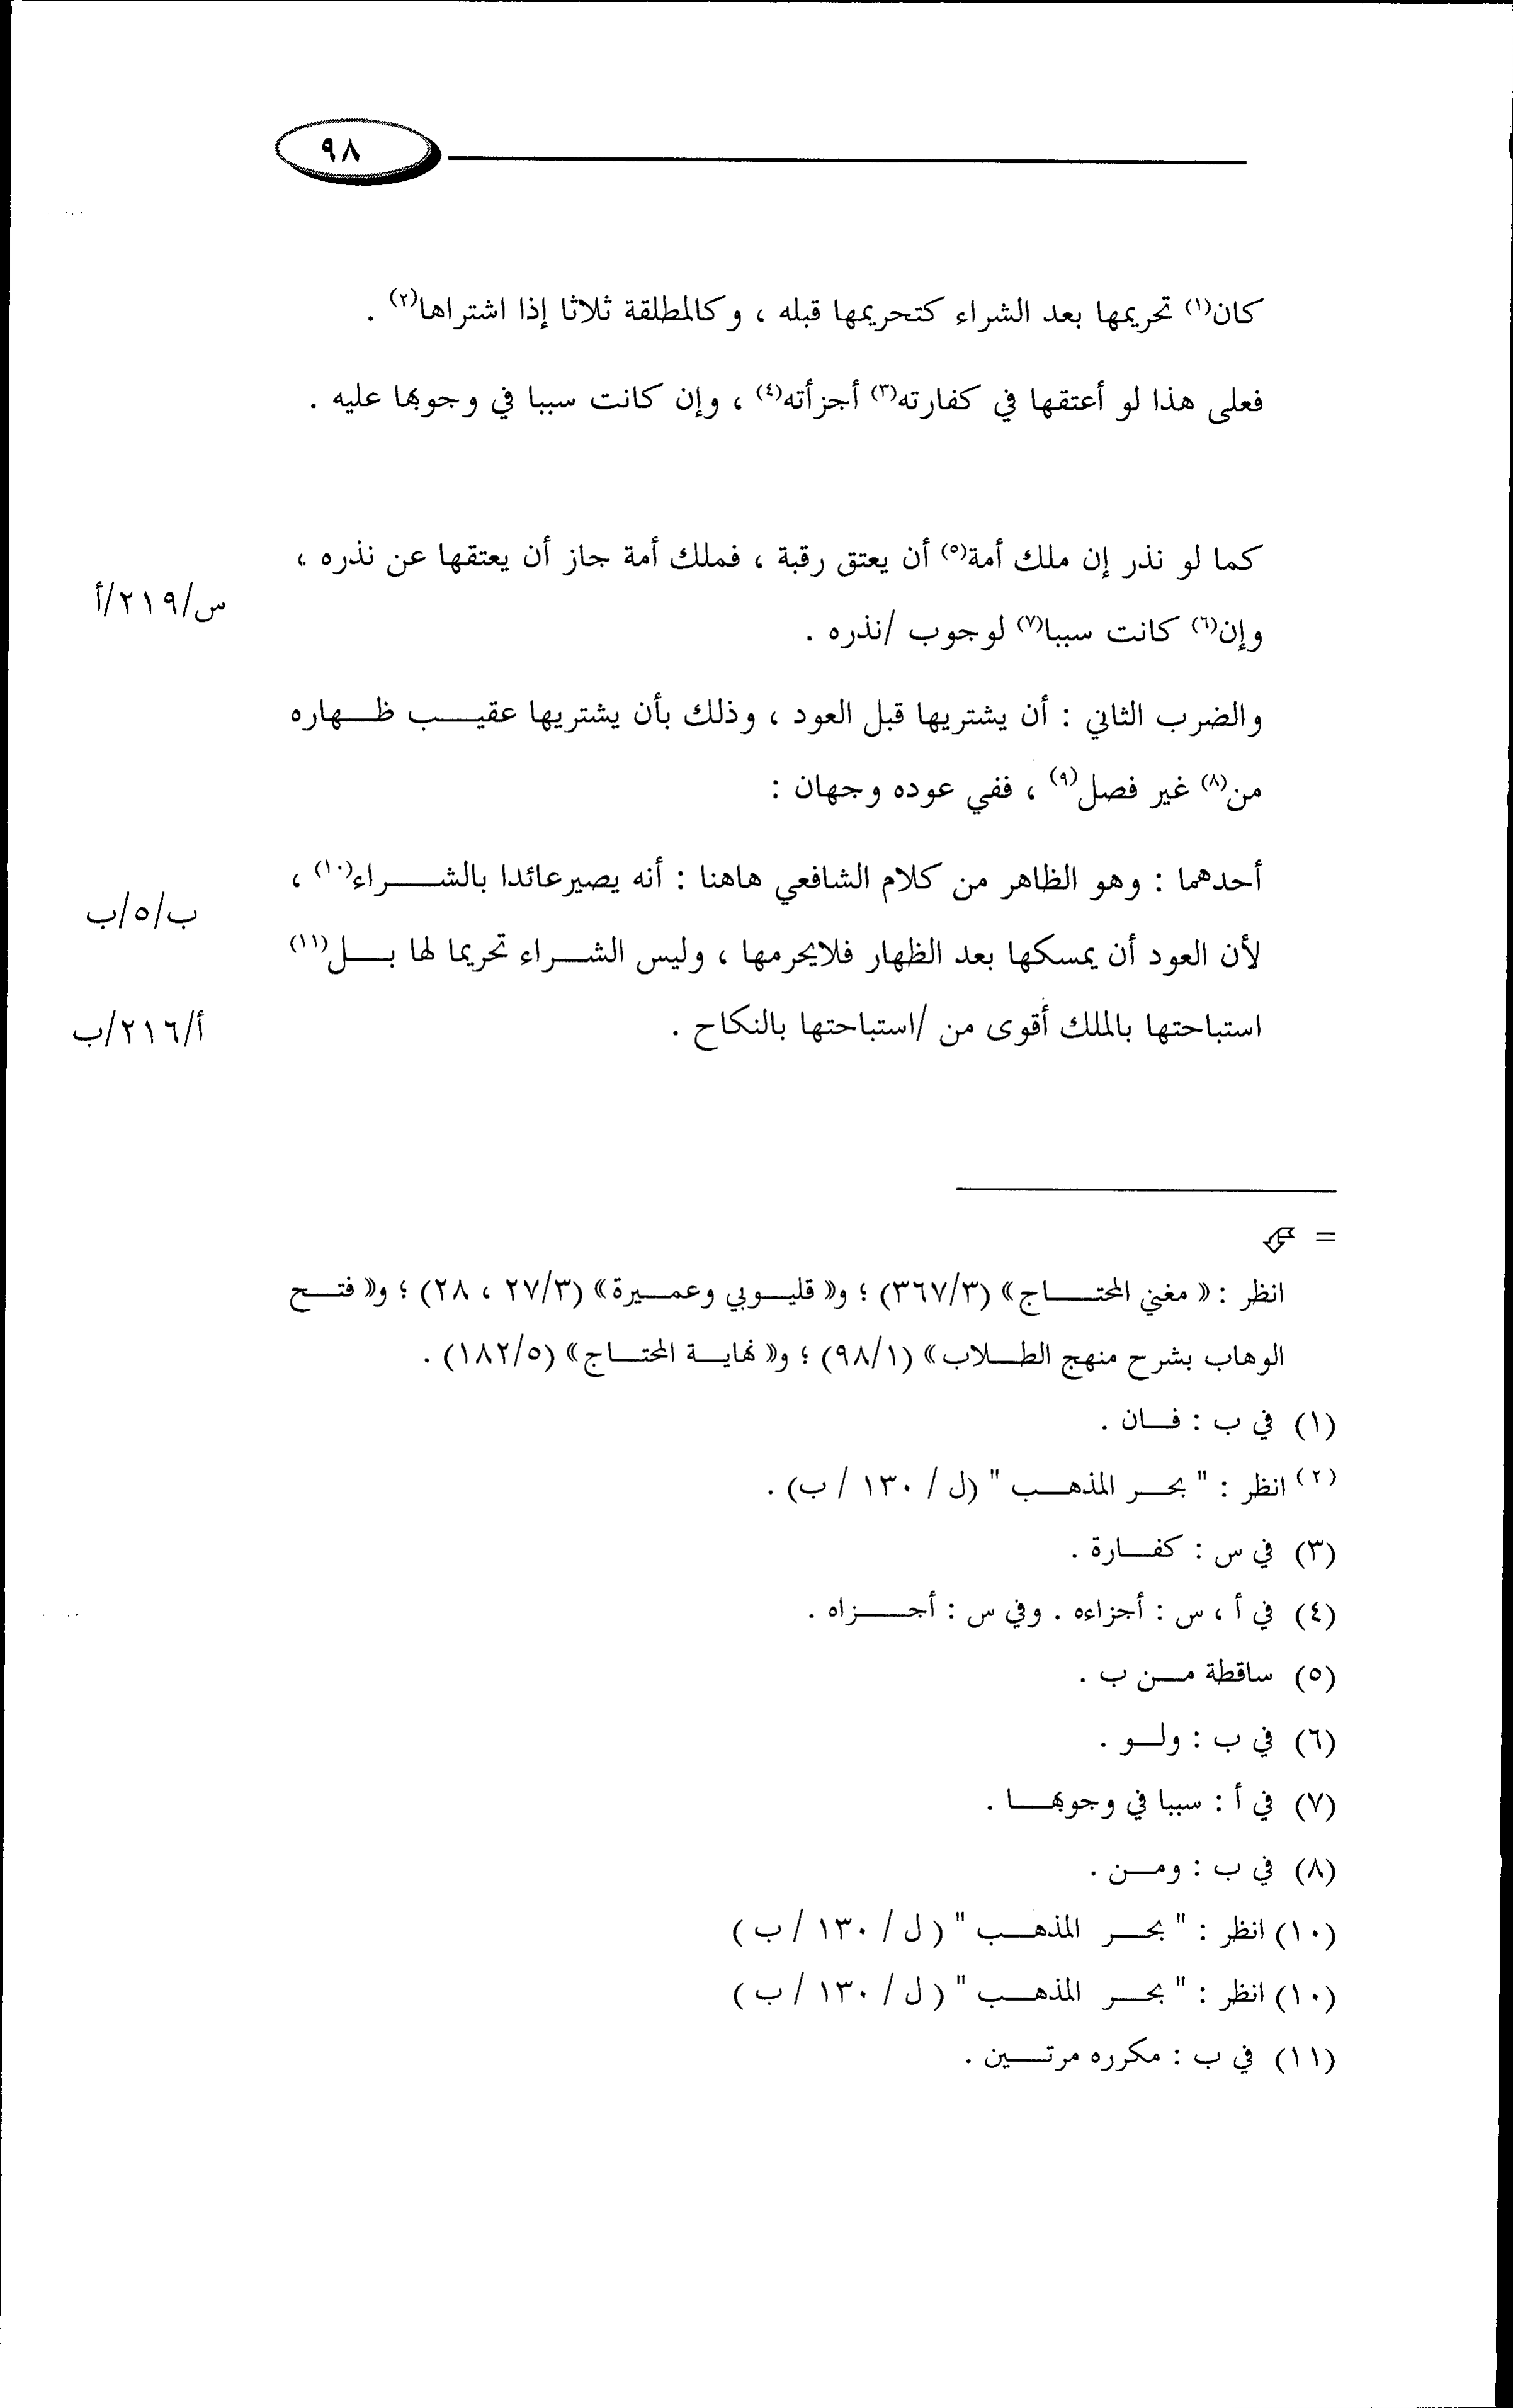 ٩٨
كان(١) تحريمها بعد الشراء كتحريمها قبله ، وكالمطلقة ثلاثا إذا اشتراها(٢) .
فعلى هذا لو أعتقها في كفارته(٣) أجزأته(٤) ، وإن كانت سببا في وجوبها عليه .
كما لو نذر إن ملك أمة(٥) أن يعتق رقبة ، فملك أمة جاز أن يعتقها عن نذره ،
س/٢١٩/أ
وإن(٦) كانت سببا(٧) لوجوب /نذره .
والضرب الثاني : أن يشتريها قبل العود ، وذلك بأن يشتريها عقيب ظهاره
من(٨) غير فصل(٩) ، ففي عوده وجهان :
أحدهما : وهو الظاهر من كلام الشافعي هاهنا : أنه يصيرعائدا بالشراء(١٠) ،
ب/٥/ب
لأن العود أن يمسكها بعد الظهار فلايحرمها ، وليس الشراء تحريما لها بل(١١)
استباحتها بالملك أقوى من /استباحتها بالنكاح .
أ/٢١٦/ب
=
انظر : « مغني المحتاج» (٣٦٧/٣) ؛ و« قليوبي وعميرة» (٢٧/٣ ، ٢٨) ؛ و« فتح
الوهاب بشرح منهج الطلاب» (٩٨/١) ؛ و« نهاية المحتاج» (١٨٢/٥) .
(١) في ب : فان .
(٢) انظر : " بحر المذهب " (ل / ١٣٠ / ب) .
(٣) في س : كفارة .
(٤) في أ ، س : أجزاءه . وفي س : أجزاه .
(٥) ساقطة من ب .
(٦) في ب : ولو .
(٧) في أ : سببا في وجوبها .
(٨) في ب : ومن .
(١٠) انظر : " بحر المذهب " ( ل / ١٣٠ / ب )
(١٠) انظر : " بحر المذهب " ( ل / ١٣٠ / ب )
(١١) في ب : مكرره مرتين .